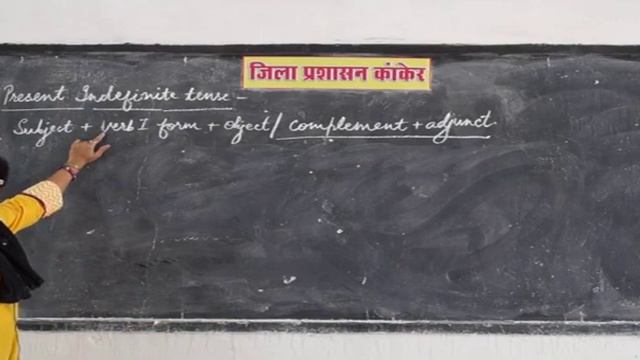 जिला प्रशासन कांकेर
Present Indefinite tense -
Subject + verb I form + object / complement + adjunct.